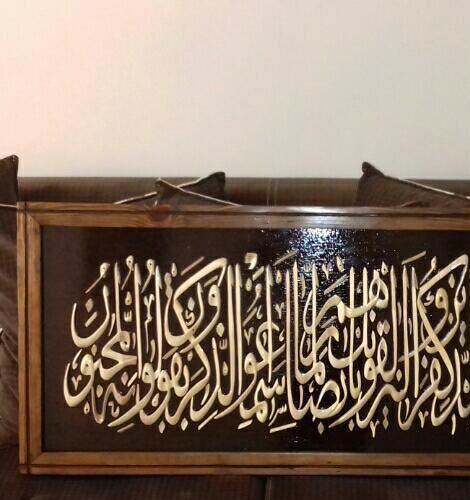 كفروا ليزلقونك بأبصارهم لما سمعوا الذكر ويقولون إنه لمجنون